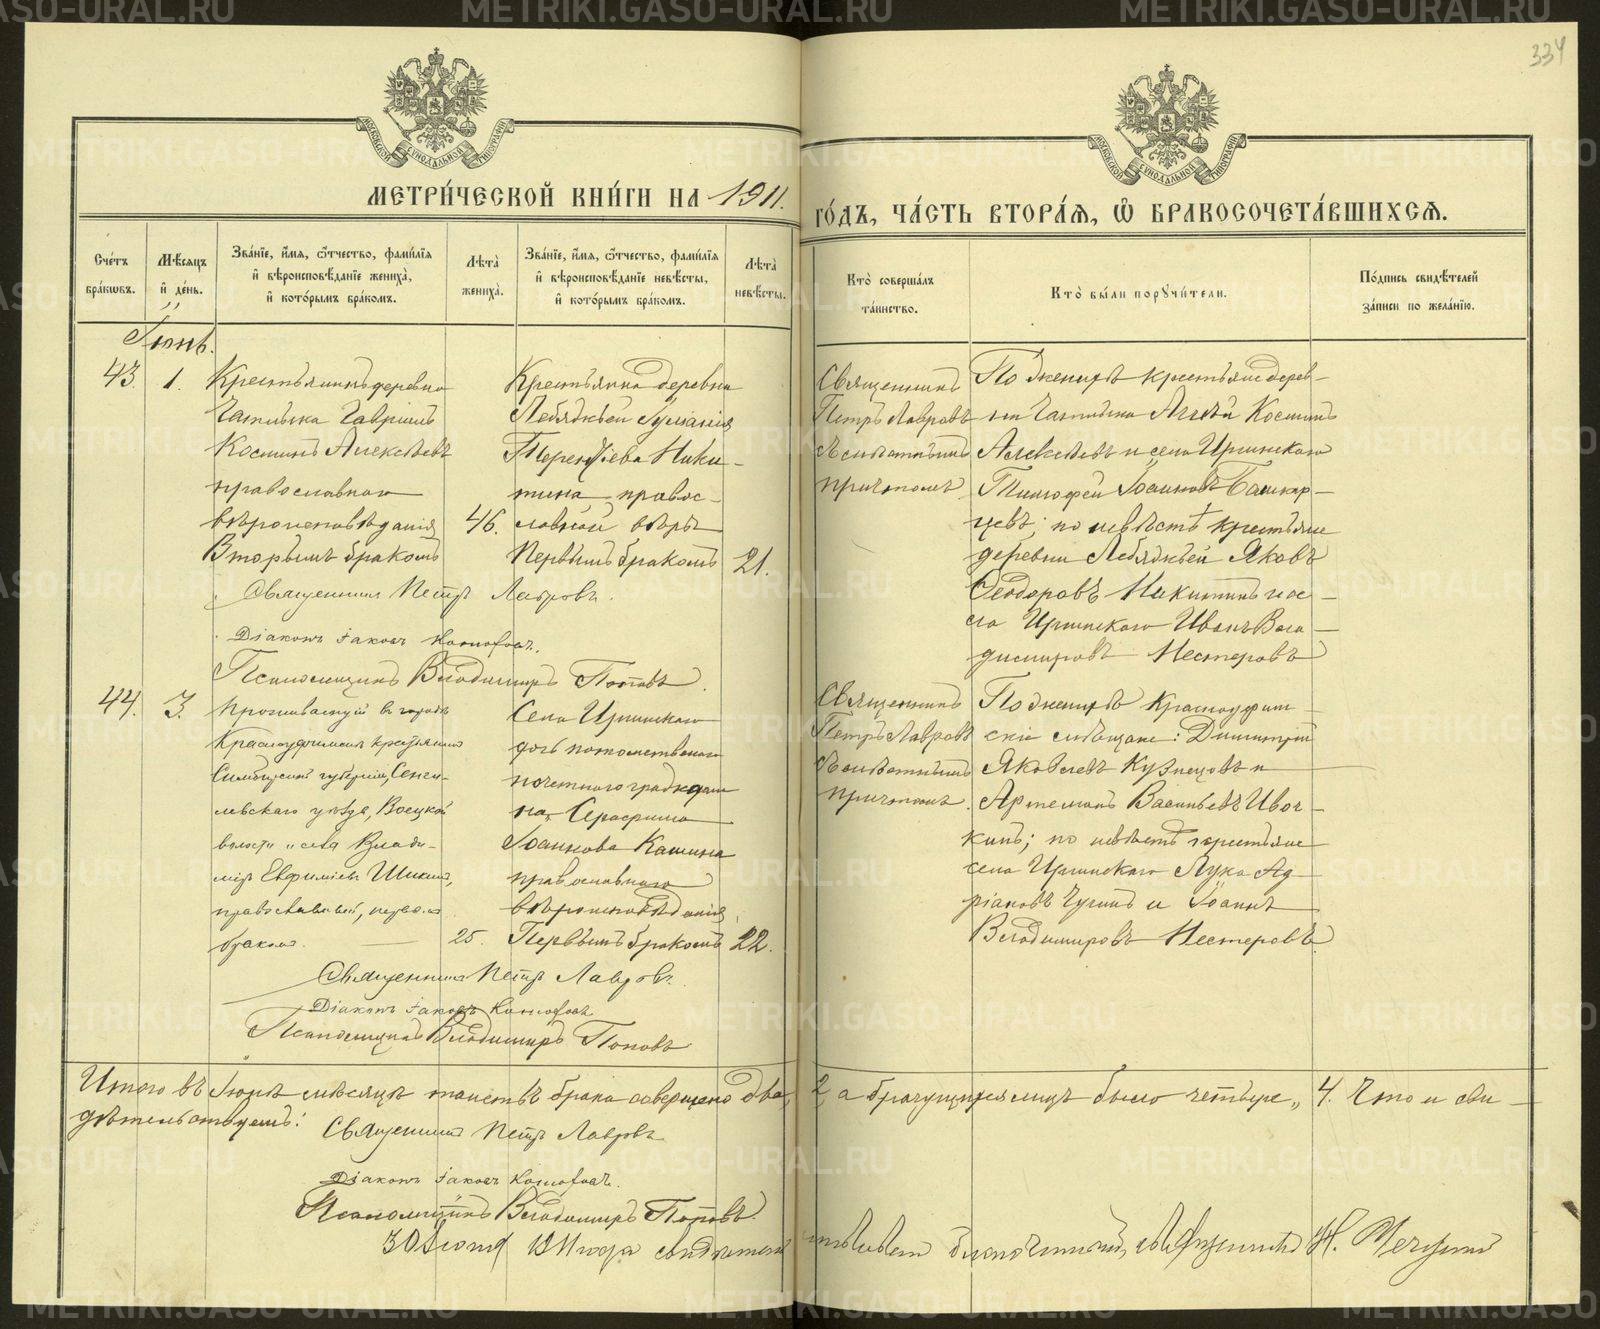 334
МОСКОВСКОЙ СѴНОДАЛЬНОЙ ТИПОГРАФІИ
МОСКОВСКОЙ СѴНОДАЛЬНОЙ ТИПОГРАФІИ
МЕТРИ́ЧЕСКОЙ КНИ́ГИ НА 1911.
ГО́ДЪ, ЧА́СТЬ ВТОРА́Ѧ, Ѽ БРАКОСОЧЕТА́ВШИХСѦ.
Сче́тъ бра́кѡвъ.
Мѣ́сѧцъ и҆ де́нь.
Зва́нїе, и҆́мѧ, ѻ҆́тчество, фами́лїѧ и҆ вѣроисповѣ́данїе жениха̀, и҆ кото́рымъ бра́комъ.
Лѣта̀ жениха̀.
Зва́нїе, и҆́мѧ, ѻ҆́тчество, фами́лїѧ и҆ вѣроисповѣ́данїе невѣ́сты, и҆ кото́рымъ бра́комъ.
Лѣта̀ невѣ́сты.
Кто̀ соверша́лъ та́инство.
Кто̀ бы́ли порꙋчи́тели.
По́дпись свидѣ́телей за́писи по жела́нїю.
Іюнь.
43. 1.
Крестьянинъ деревни
Гавріилъ
Косминъ Алексѣевъ
православнаго
вѣроисповѣданія
Вторымъ бракомъ
46.
Крестьянка деревни
Терентіева Ники-
тина, правос-
лавной вѣры
Первымъ бракомъ
21.
Священникъ
Петръ Лавровъ
причтомъ
По женихѣ крестьяне дерев-
ни Косминъ
Алексѣевъ и села Иргинскаго
Тимофей Іоанновъ Башкир-
цевъ; по невѣстѣ крестьяне
деревни Яковъ
Ѳеодоровъ Никитинъ и се-
ла Иргинскаго Иванъ Вла-
димировъ Нестеровъ
Священникъ Петръ Лавровъ.
Діаконъ Іаковъ
Псаломщикъ Владимиръ Поповъ.
44. 3.
Проживающій въ городѣ
Красноуфимскѣ крестьянинъ
Симбирской губерніи, Сенги-
леевскаго уѣзда,
волости и села Влади-
міръ Евфиміевъ
православный, первымъ
бракомъ.
25.
Села Иргинскаго
дочь потомственнаго
почетнаго гражда-
нина, Серафима
Іоаннова Кашина
православнаго
вѣроисповѣданія,
Первымъ бракомъ
22.
Священникъ
Петръ Лавровъ
причтомъ.
По женихѣ Красноуфим-
скіе мѣщане: Димитрій
Яковлевъ Кузнецовъ и
Артемонъ Васильевъ Ивоч-
кинъ; по невѣстѣ крестьяне
села Иргинскаго Лука Ад-
ріановъ и Іоаннъ
Владимировъ Нестеровъ.
Священникъ Петръ Лавровъ.
Діаконъ Іаковъ
Псаломщикъ Владимиръ Поповъ
Итого въ Іюнѣ мѣсяцѣ таинствъ брака совершено два, 2, а брачущихся лицъ было четыре, 4. Что и сви-
дѣтельствуемъ:
Священникъ Петръ Лавровъ
Діаконъ Іаковъ
Псаломщикъ Владимиръ Поповъ.
1911 года благочинный, священникъ Н.
METRIKI.GASO-URAL.RU